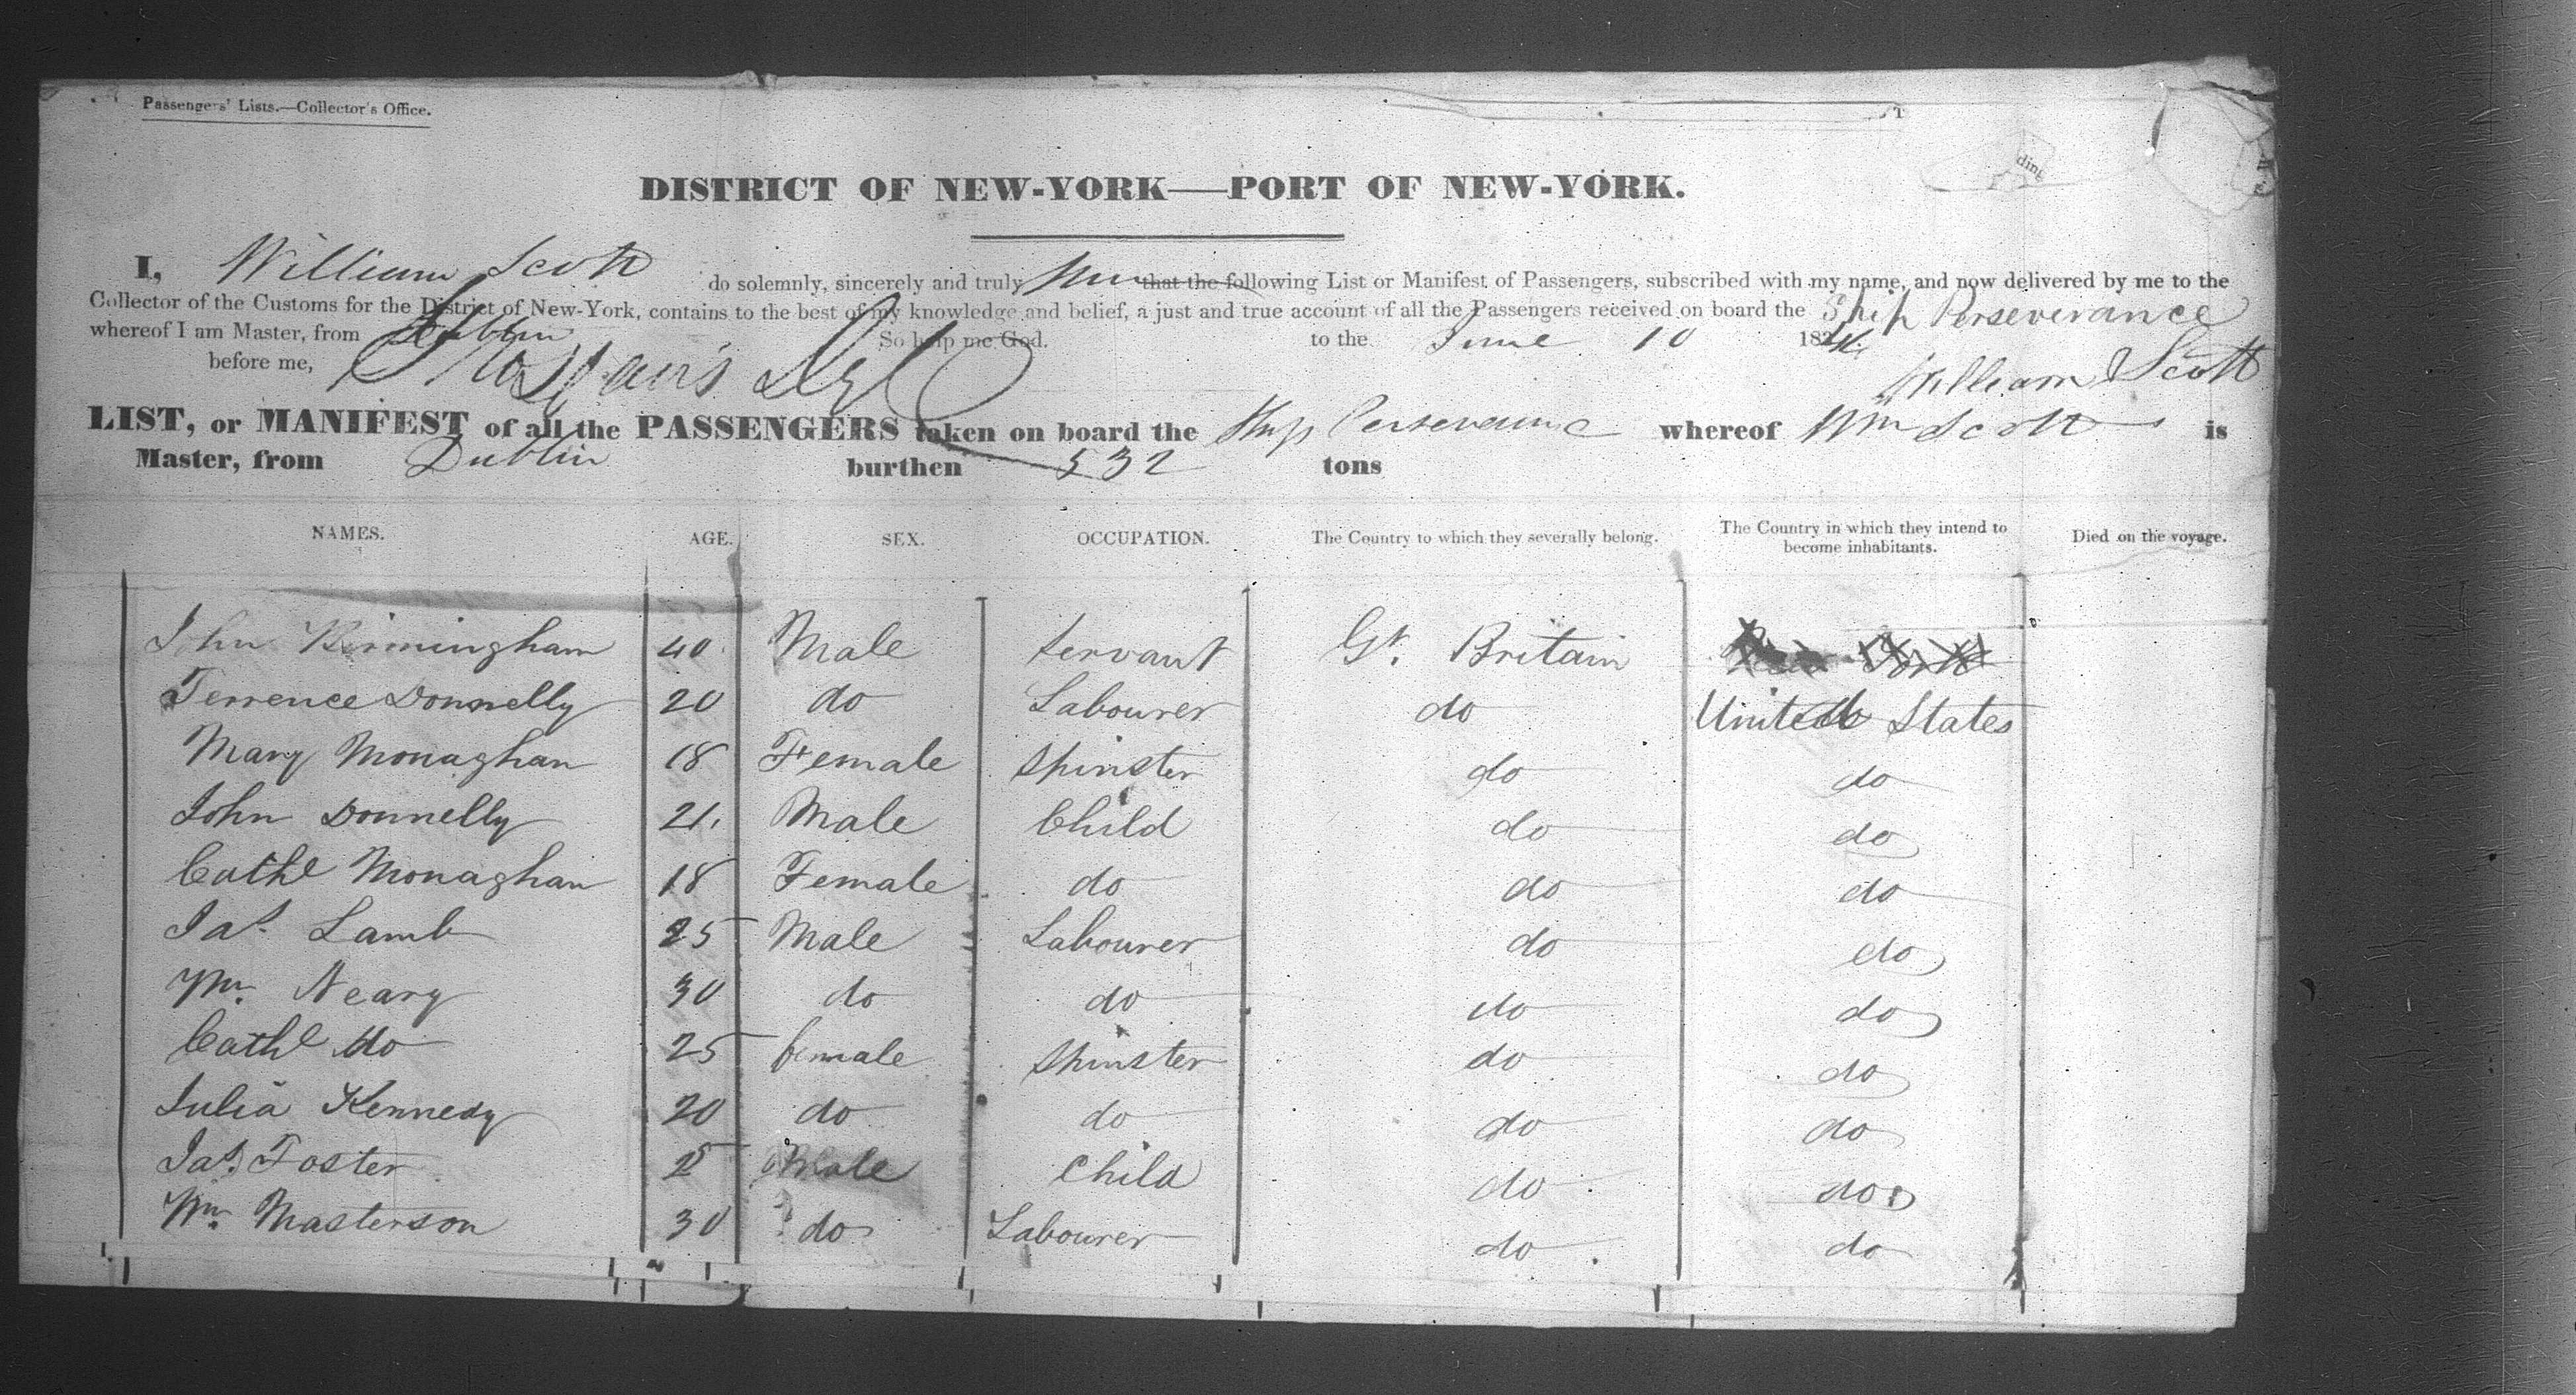 Passengers' Lists.—Collector's Office.
ding
DISTRICT OF NEW-YORK—PORT OF NEW-YORK.
I, William Scott do solemnly, sincerely and truly that the following List or Manifest of Passengers, subscribed with my name, and now delivered by me to the
Collector of the Customs for the District of New-York, contains to the best of my knowledge and belief, a just and true account of all the Passengers received on board the Ship Perseverance
whereof I am Master, from Dublin So help me God. to the June 10 183
before me, William Scott
LIST, or MANIFEST of all the PASSENGERS taken on board the Ship Perseverance whereof Wm Scott is
Master, from Dublin burthen 532 tons
NAMES. AGE. SEX. OCCUPATION. The Country to which they severally belong. The Country in which they intend to become inhabitants. Died on the voyage.
John Birmingham 40 Male Servant Gt. Britain New York
Terrence Donnelly 20 do Labourer do United States
Mary Monaghan 18 Female Spinster do do
John Donnelly 21 Male Child do do
Cathe Monaghan 18 Female do do do
Jas. Lamb 25 Male Labourer do do
Wm. Neary 30 do do do do
Cathe do 25 female Spinster do do
Julia Kennedy 20 do do do do
Jas. Foster Male Child do do
Wm. Masterson 30 do Labourer do do